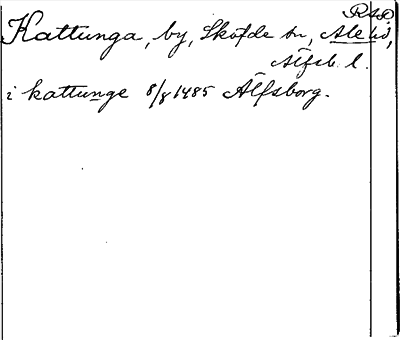 RAp
Kattunga, by, Sköfde sn, Ale hd,
Älfsb. l.
i kattunge 8/8 1485 Älfsborg.